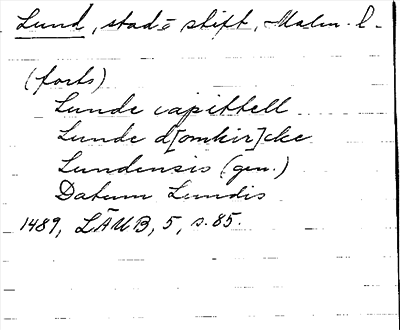 Lund, stad o stift, Malm. l.
(forts)
Lunde capittell
Lunde d[omkir]cke
Lundensis (gen.)
Datum Lundis
1489, LÄUB, 5, s. 85.